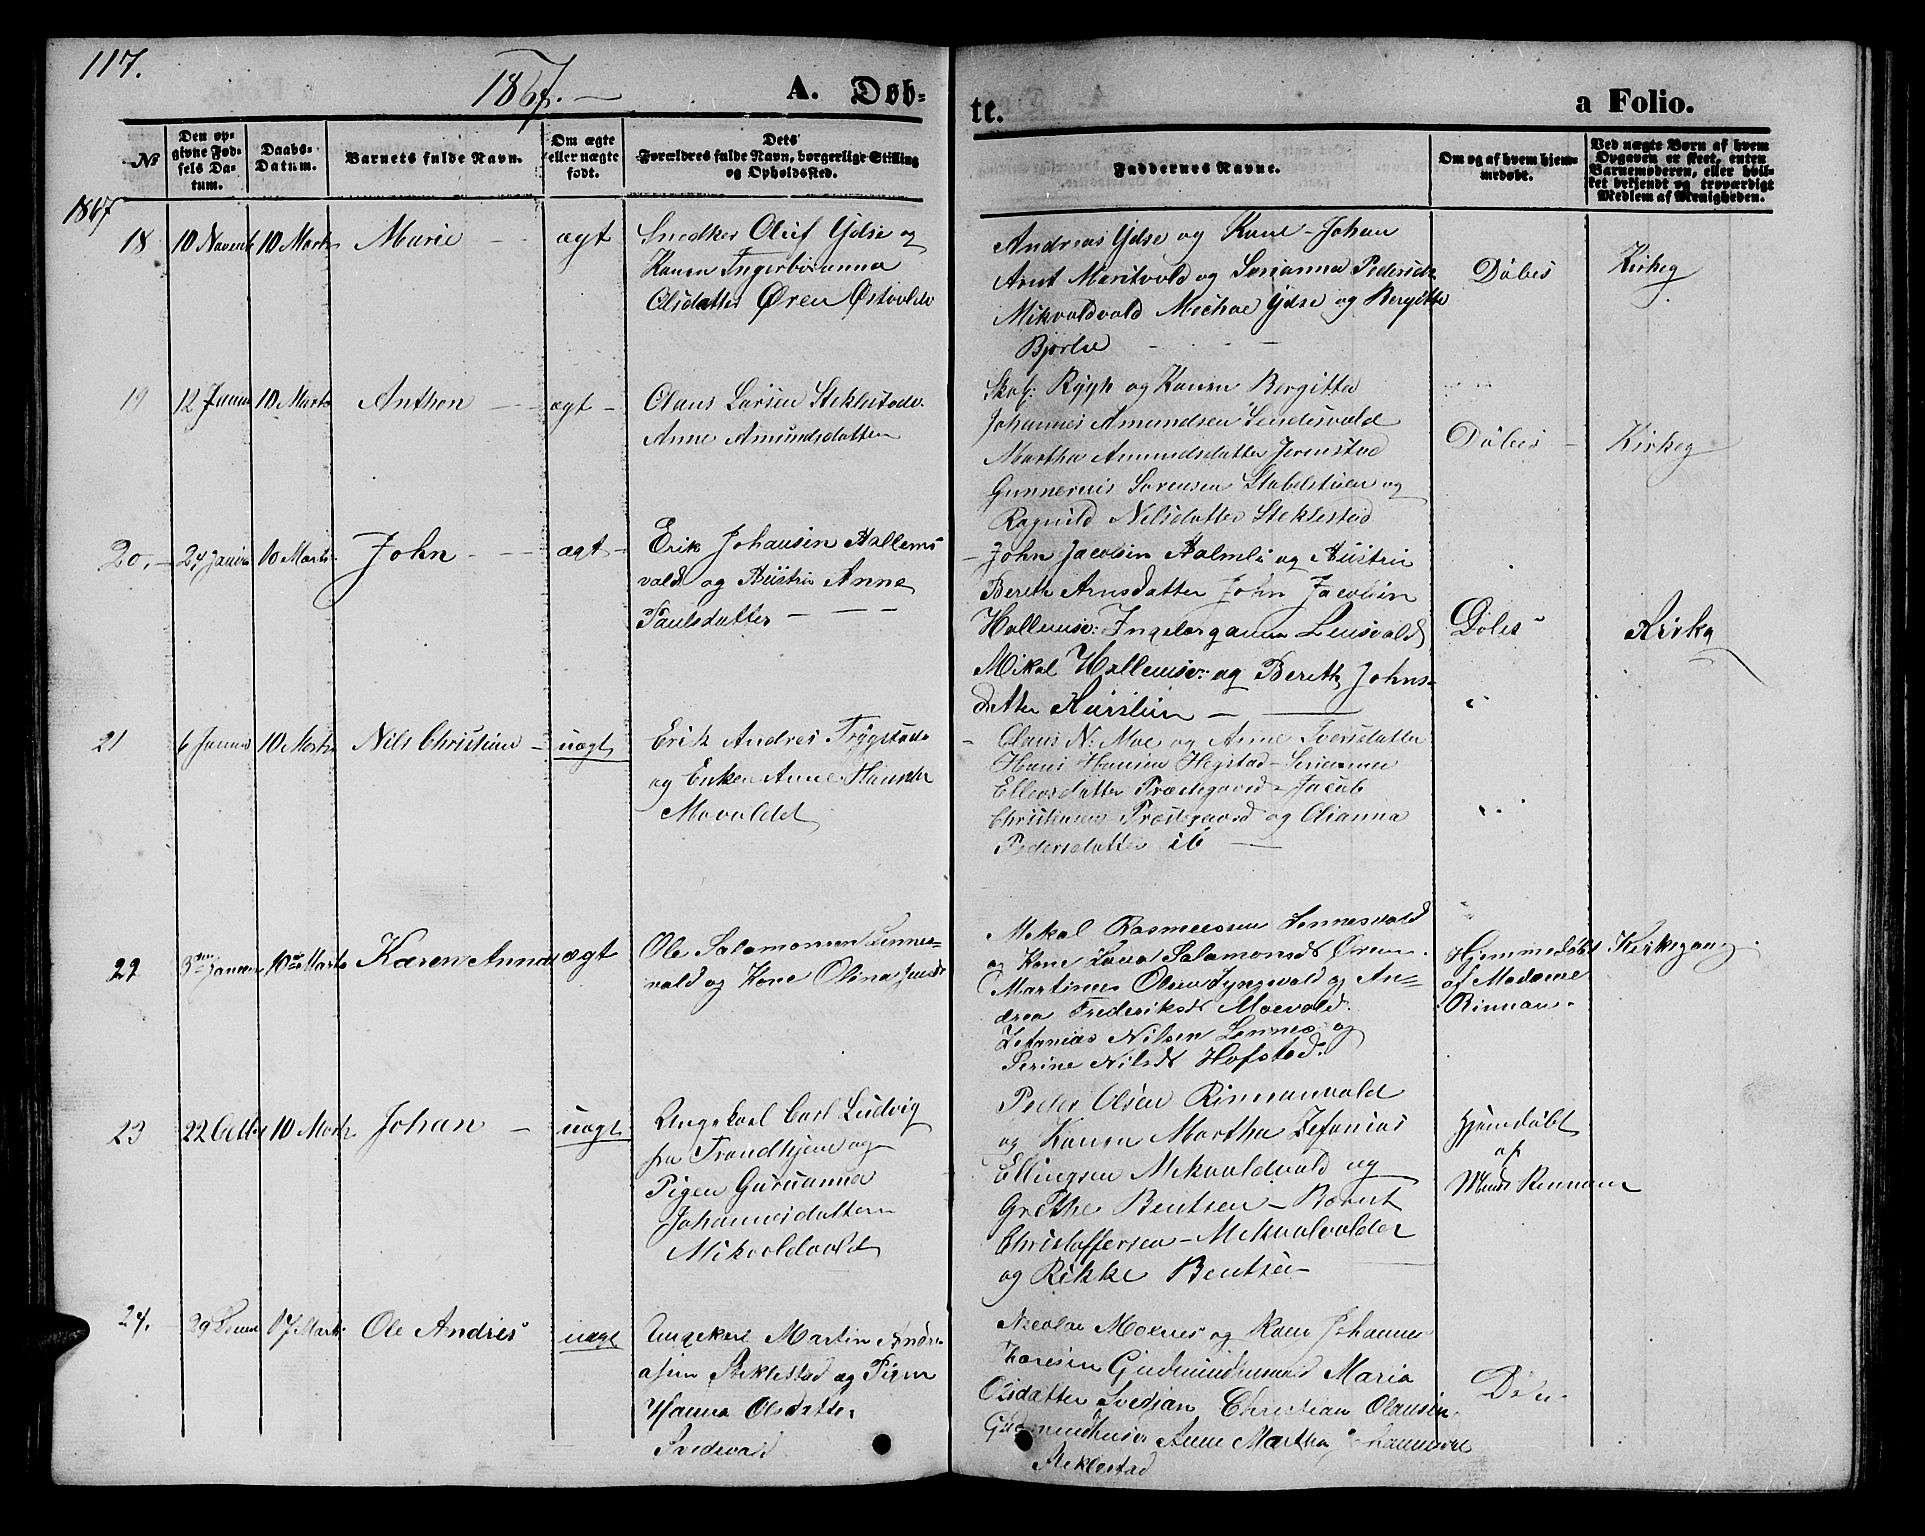 117.
1867. —
A. Døb-
te.
a Folio.
No
Den op-
givne Fød-
sels Da-
tum.
Daabs-
Datum.
Barnets fulde Navn.
Om ægte
eller uægte
født.
Dets
Forældres fulde Navn, borgerlige Stilling
og Opholdssted.
Faddernes Navne.
Om og af hvem hjem-
medøbt.
Ved uægte Børn af hvem
Opgaven er skeet, enten
Barnemoderen, eller hvil-
ket bekjendt og troværdigt
Medlem af Menigheden.
1867
18
10 Novemb
10 Marts
Marie
ægt
Snedker Oluf Ydse og
Konen Ingerboranna
Olsdatter Øren Østvolde
Andreas Ydse og Kone - Johan
Arnt Maritvold og Serianna Pedersd
Mikvoldvald Michae Ydse og Bergitte
Bjørlie
Døbes
Kirkeg
19
12 Januar
10 Marts
Anthon
ægt
Claus Larsen Steklestade
Anne Amundsdatter
Skol: Rygh og Konen Bergitta
Johannes Amundsen
Martha Amundsdatter Jermstad
Gunnerius Sørensen Stabelstuen og
Ragnild Nilsdatter Steklestad
Døbes
Kirkeg
20.
24 Januar
10 Marts
John
ægt
Erik Johansen Hallems
vald og Hustru Anne
Paulsdatter
John Jacobsen Holmli og Hustru
Bereth Arnsdatter John Jacobsen
Hallemsv: Ingeborganna
Mikal Hallemsv: og Bereth Johns-
datter
Døbes
Kirkg
21
6 Januar
10 Marts
Nils Christian
uægt
Erik Andres Trøgstade
og Enken Anne Hansdr
Movaldet
Claus N: Moe og Anne Iversdatter
Hans Hansen Hegstad - Serianna
Ellevsdatter Præstegaard - Jacob
Christiansen Præstegaard og Olianna
Pedersdatter ib
22
3die Januar
10de Marts
Karen Anna
ægt
Ole Salamonsen Lennes-
vald og Kone Olina
Mekal Rasmussen Lennesvald
og Kone Lava Salamonsd Øren.
Martines Olsen Lyngsvald og An-
drea Frederiksd Moevald.
Zefanias Nilsen Lennes og
Perine Nilsd Hofstad.
Hjemmedøbt
af Madame
Rinnan.
Kirkegang
23
22 Octbr
10 Marts
Johan
uægt
Ungekarl Carl Ludvig
fra Trondhjem og
Pigen Gurianna
Johannesdatter
Mikvoldvald
Peder Olsen Rinnanvald
og Konen Martha Zefanias
Ellingsen Mekvoldvald og
Grethe Bentsen - Bernt
Christoffersen - Mekvolvalder
og Rikke Bentsen
Hjemdøbt
af
Mads Rinnan
24.
29
17 Marts
Ole Andreas
uægt
Ungekarl Martin Andre
asen Steklestad og Pigen
Hanna Olsdatter
Svedsvald
Nicolai Moenes og Kone Johannes
Toresen Gudmundhusvald Maria
Olsdatter Svedjan Christian Olausen
Gudmundhuser Anne Martha
Steklestad